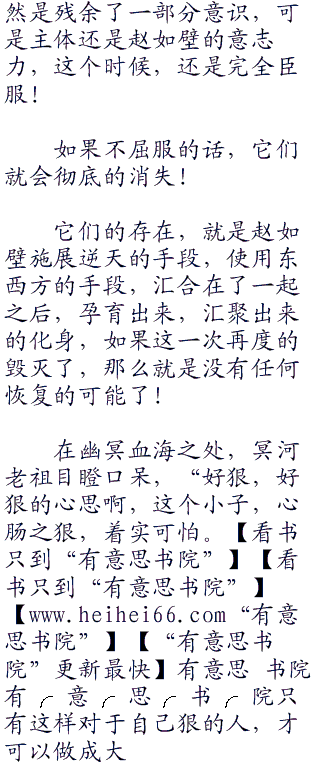 然是残余了一部分意识，可
是主体还是赵如壁的意志
力，这个时候，还是完全臣
服！
如果不屈服的话，它们
就会彻底的消失！
它们的存在，就是赵如
壁施展逆天的手段，使用东
西方的手段，汇合在了一起
之后，孕育出来，汇聚出来
的化身，如果这一次再度的
毁灭了，那么就是没有任何
恢复的可能了！
在幽冥血海之处，冥河
老祖目瞪口呆，“好狠，好
狠的心思啊，这个小子，心
肠之狠，着实可怕。【看书
只到“有意思书院”】【看
书只到“有意思书院”】
【www.heihei66.com“有意
思书院”】【“有意思书
院”更新最快】有意思 书院
有╭意╭思╭书╭院只
有这样对于自己狠的人，才
可以做成大